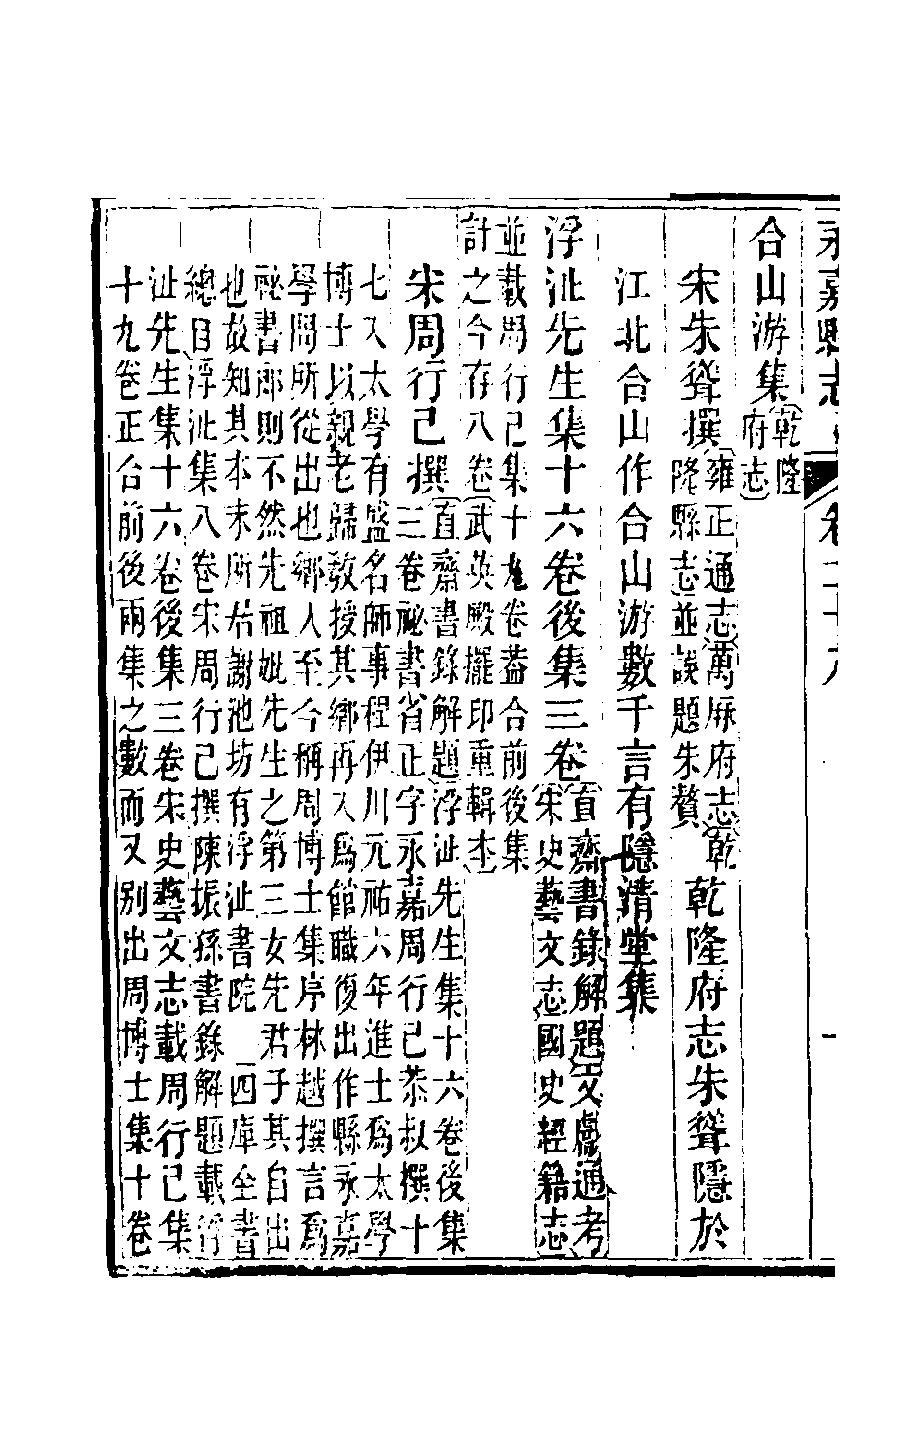 永嘉縣志 卷二十八
合山游集乾隆府志
宋朱聳撰雍正通志萬厤府志乾隆縣志並誤題朱贅乾隆府志朱聳隱於
江北合山作合山游數千言有隱清堂集
浮沚先生集十六卷後集三卷直齋書錄解題文獻通考宋史藝文志國史經籍志
並載周行己集十九卷葢合前後集計之今存八卷武英殿擺印重輯本
宋周行己撰直齋書錄解題浮沚先生集十六卷後集
三卷祕書省正字永嘉周行己恭叔撰十
七入太學有盛名師事程伊川元祐六年進士爲太學
博士以親老歸敎授其鄉再入爲館職復出作縣永嘉
學問所從出也鄉人至今稱周博士集序林越撰言爲
祕書郎則不然先祖妣先生之第三女先君子其自出
也故知其本末所居謝池坊有浮沚書院 四庫全書
總目浮沚集八卷宋周行己撰陳振孫書錄解題載浮
沚先生集十六卷後集三卷宋史藝文志載周行己集
十九卷正合前後兩集之數而又別出周博士集十卷